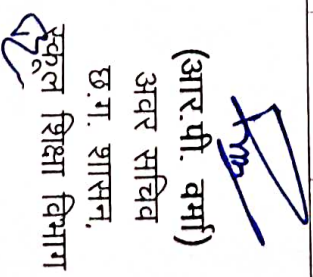 (आर.पी. वर्मा)
अवर सचिव
छ.ग. शासन,
स्कूल शिक्षा विभाग